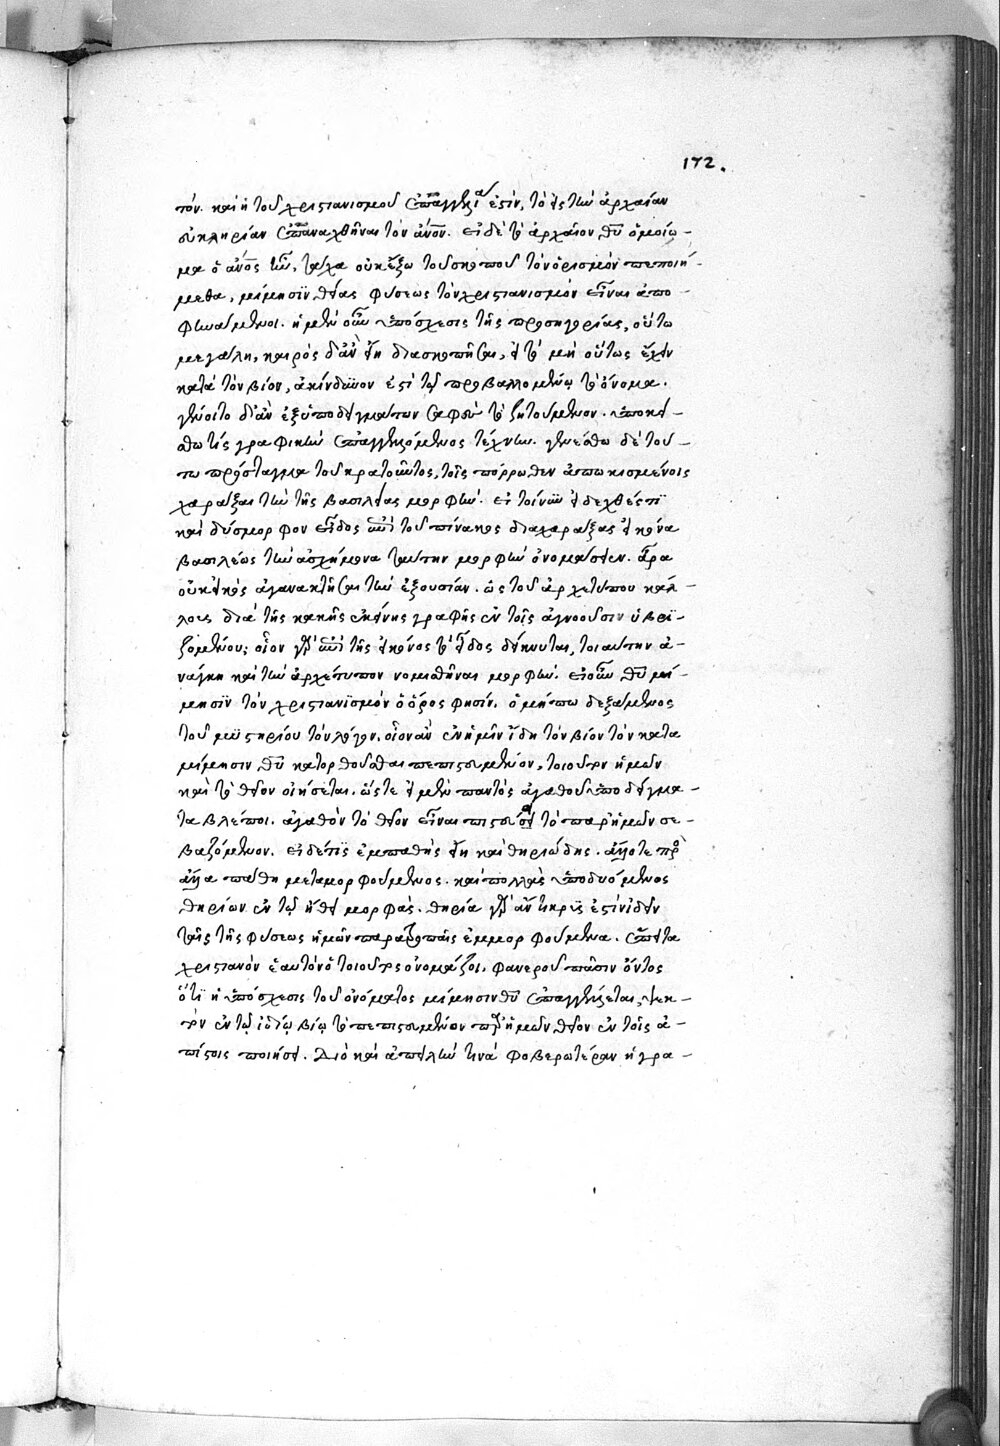 172.
τόν. καὶ ἡ τοῦ χριστιανισμοῦ ἐπαγγελία ἐστὶν, τὸ εἰς τὴν ἀρχαίαν
εὐκληρίαν ἐπαναχθῆναι τὸν ἄνον. εἰ δὲ τὸ ἀρχαῖον θῦ ὁμοίω-
μα ὁ ἄνος ἦν, τάχα οὐκ ἔξω τοῦ σκοποῦ τὸν ὁρισμὸν πεποιή-
μεθα, μίμησιν θείας φύσεως τὸν χριστιανισμὸν εἶναι ἀπο-
φηνάμενοι. ἡ μὲν οὖν ὑπόσχεσις τῆς προσηγορίας, οὕτω
μεγάλη, καιρὸς δ' ἂν εἴη διασκοπῆσαι, εἰ τὸ μὴ οὕτως ἔχειν
κατὰ τὸν βίον, ἀκίνδυνον ἐστὶ τῷ προβαλλομένῳ τὸ ὄνομα.
γένοιτο δ' ἂν ἐξ ὑποδείγματων σαφὲς τὸ ζητούμενον. ὑποκεί-
σθω τίς γραφικὴν ἐπαγγελλόμενος τέχνην. γενέσθω δὲ τού-
τω πρόσταγμα τοῦ κρατοῦντος, τοῖς πόρρωθεν ἀπωκισμένοις
χαράξαι τὴν τῆς βασιλείας μορφήν. εἰ τοίνυν εἰδεχθές τι
καὶ δύσμορφον εἶδος ἐπὶ τοῦ πίνακος διαχαράξας εἰκόνα
βασιλέως τὴν ἀσχήμονα ταύτην μορφὴν ὀνομάσειεν. ἆρα
οὐκ εἰκὸς ἀγανακτῆσαι τὴν ἐξουσίαν. ὡς τοῦ ἀρχετύπου κάλ-
λους διὰ τῆς κακῆς ἐκείνης γραφῆς ἐν τοῖς ἀγνοοῦσιν ὑβρι-
ζομένου; οἷον γὰρ ἐπὶ τῆς εἰκόνος τὸ εἶδος δείκνυται, τοιαύτην ἀ-
νάγκη καὶ τὴν ἀρχέτυπον νομισθῆναι μορφήν. εἰ οὖν θῦ μί-
μησιν τὸν χριστιανισμὸν ὁ ὅρος φησίν. ὁ μήπω δεξάμενος
τοῦ μυστηρίου τὸν λόγον, οἷον ἂν ἐν ἡμῖν ἴδη τὸν βίον τὸν κατὰ
μίμησιν θῦ κατορθοῦσθαι πεπιστευμένον, τοιοῦτον ἡμῶν
καὶ τὸ θεῖον οἰήσεται. ὥστε εἰ μὲν παντὸς ἀγαθοῦ ὑποδείγμα-
τα βλέποι. ἀγαθὸν τὸ θεῖον εἶναι πιστεύσει τὸ παρ' ἡμῶν σε-
βαζόμενον. εἰ δέ τις ἐμπαθὴς εἴη καὶ θηριώδης. ἄλλοτε πρὸς
ἄλλα πάθη μεταμορφούμενος. καὶ πολλὰς ὑποδυόμενος
θηρίων ἐν τῷ ἤθει μορφάς. θηρία γὰρ ἄντικρυς ἐστὶν ἰδεῖν
ταῖς τῆς φύσεως ἡμῶν παρατροπαῖς ἐμμορφούμενα. ἔπειτα
χριστιανὸν ἑαυτὸν ὁ τοιοῦτος ὀνομάζοι, φανεροῦ πᾶσιν ὄντος
ὅτι ἡ ὑπόσχεσις τοῦ ὀνόματος μίμησιν θῦ ἐπαγγέλλεται, ψεκ-
τὸν ἐν τῷ ἰδίῳ βίῳ τὸ πεπιστευμένον παρ' ἡμῶν θεῖον ἐν τοῖς ἀ-
πίστοις ποιήσει. Διὸ καὶ ἀπειλήν τινα φοβερωτέραν ἡ γρα-